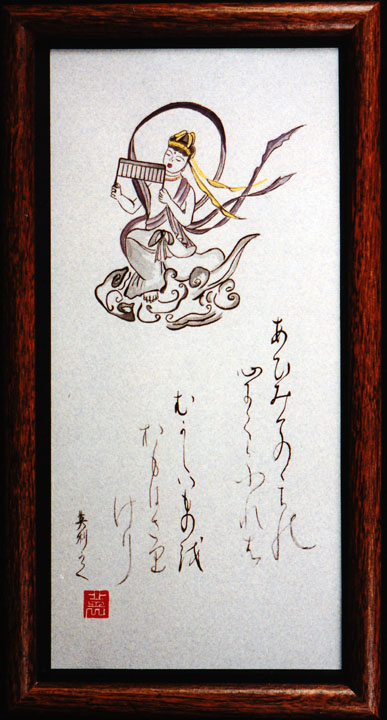 あひみてのゝちの
心にくらふれは
むかしハものを
おもはさり
けり